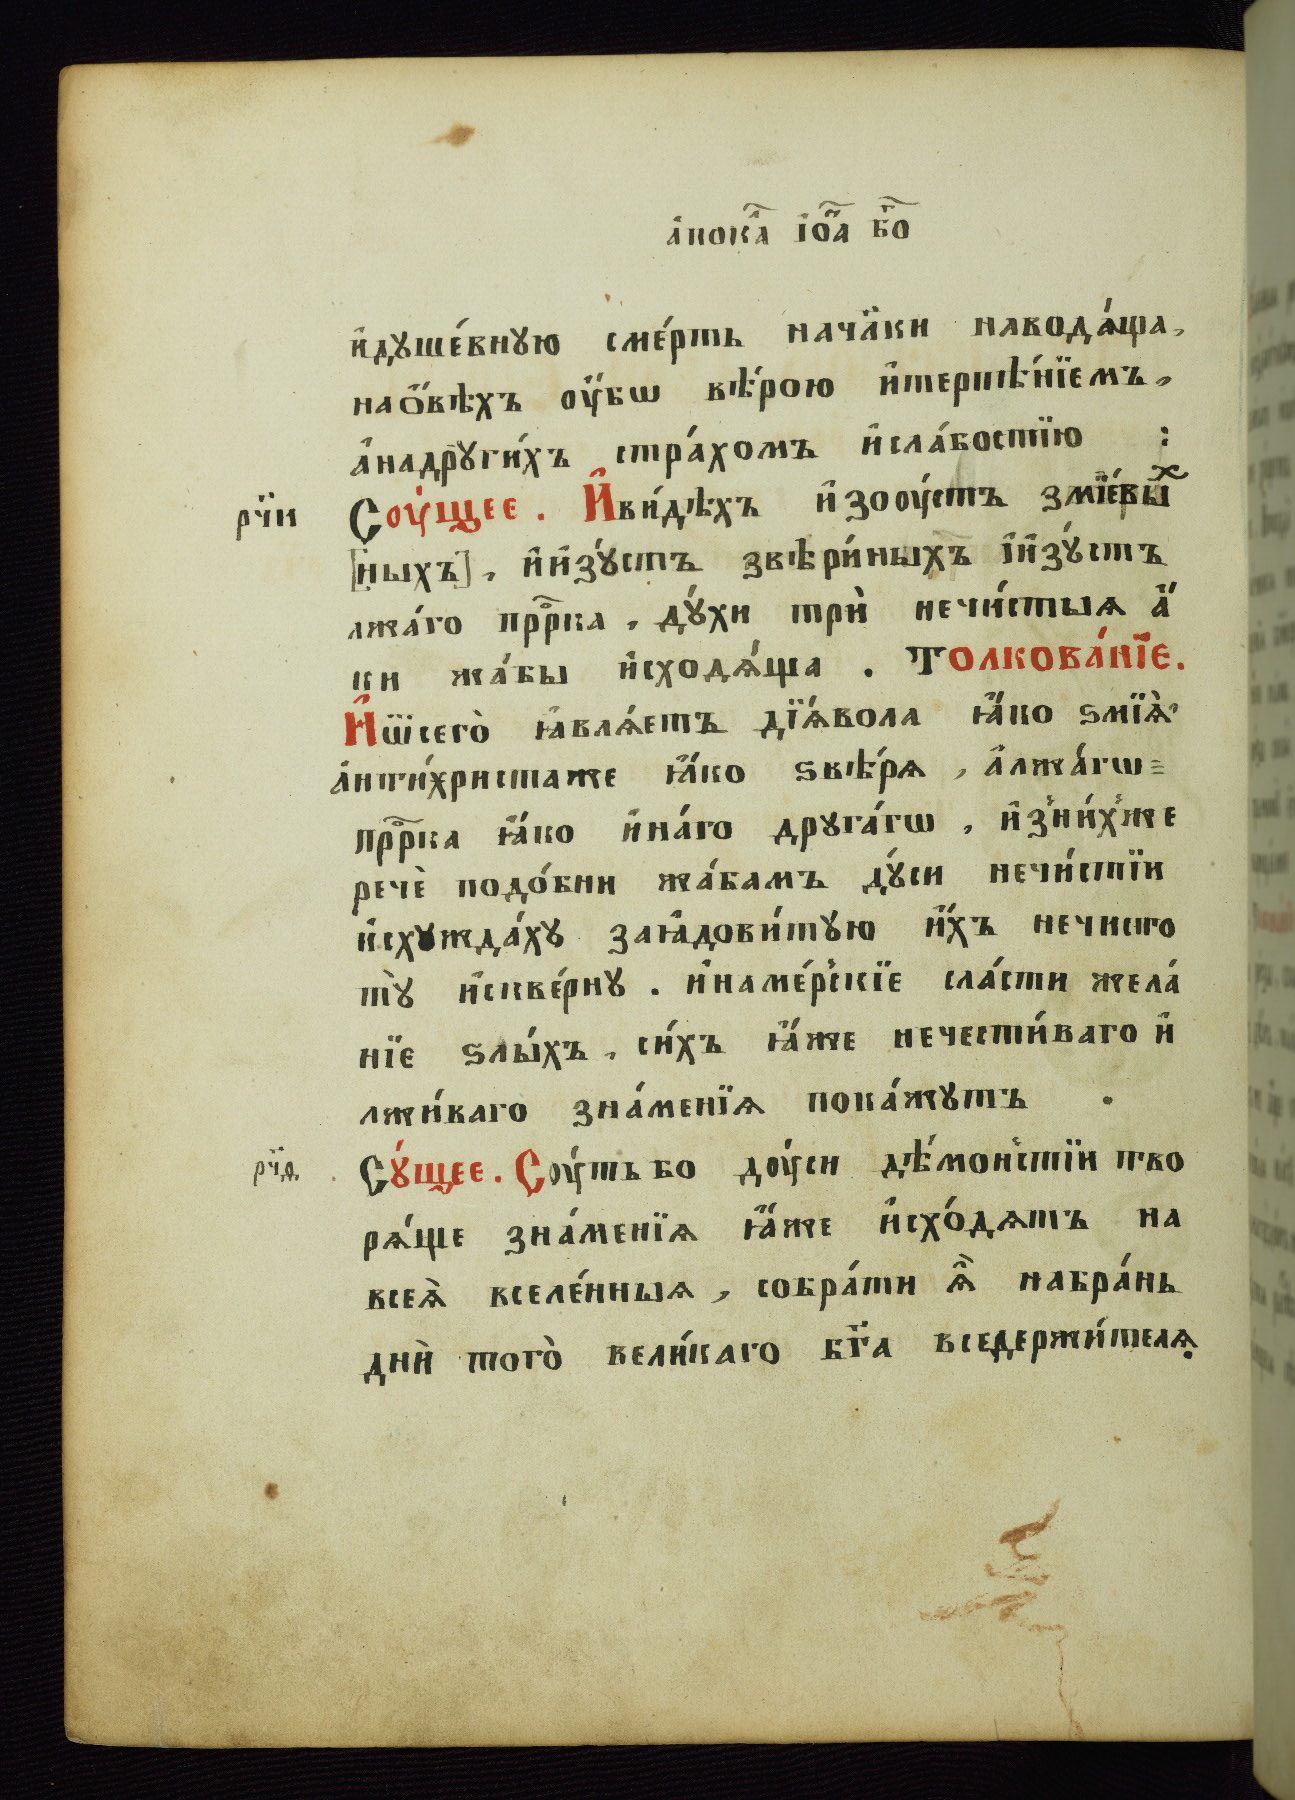 а҆пока̑л і҆ѡ҃а б҃го
и҆дꙋше́внꙋю сме́рть начл҃ки наводѧ́ща,
наѻ҆́вѣхъ оу҆́бѡ вѣ́рою и҆терпѣ́нїемъ,
а҆надрꙋги́хъ стра́хомъ и҆сла́бостїю :
рч҃и Соу́щее. И҆ви́дѣхъ и҆зооу́стъ змїе́вы̑х
[ныхъ], и҆и҆зꙋ́стъ звѣри́ныхъ і҆и҆зꙋ́стъ
лжа́го прⷪ҇рка, дꙋ́хи трѝ нечи́стыѧ а҆́
ки жа́бы и҆сходѧ́ща. Толкова́нїе.
И҆ѿсегѡ̀ ꙗ҆влѧ́етъ дїѧ́вола ꙗ҆́ко ѕмїѧ̀
а҆нти́христаже ꙗ҆́ко ѕвѣ́рѧ, а҆лжа́гѡ
прⷪ҇рка ꙗ҆́ко и҆на́го дрꙋга́гѡ, и҆зни́хже
речѐ подо́бни жа́бамъ дꙋ́си нечи́стїи
и҆схꙋжда́хꙋ заꙗ҆дови́тꙋю и҆́хъ нечисто
тꙋ̀ и҆скве́рнꙋ. и҆наме́рскїе сла́сти жела́
нїе ѕлы́хъ, си́хъ ꙗ҆́же нечести́ваго и҆
лжи́ваго зна́менїѧ пока́жꙋтъ .
рч҃ѳ. Сꙋ́щее. Соу́тьбо доу́си дѣ́монстїи тво
рѧ́ще зна́менїѧ ꙗ҆́же и҆схо́дѧтъ на
всеѧ̀ вселе́нныѧ, собра́ти ѧ҆̀ набра́нь
днѝ тогѡ̀ вели́каго бг҃а вседержи́телѧ.